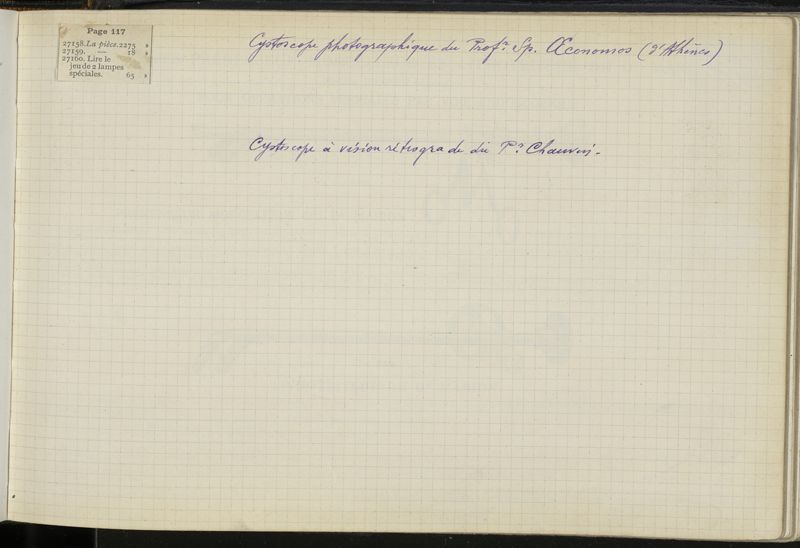 Page 117
27158. La pièce. 2275 »
27159. — 18 »
27160. Lire le
jeu de 2 lampes
spéciales. 65 »
Cystoscope photographique du Profr Sp. Œconomos (d'Athènes)
Cystoscope à vision rétrograde du Pr Chauvin.